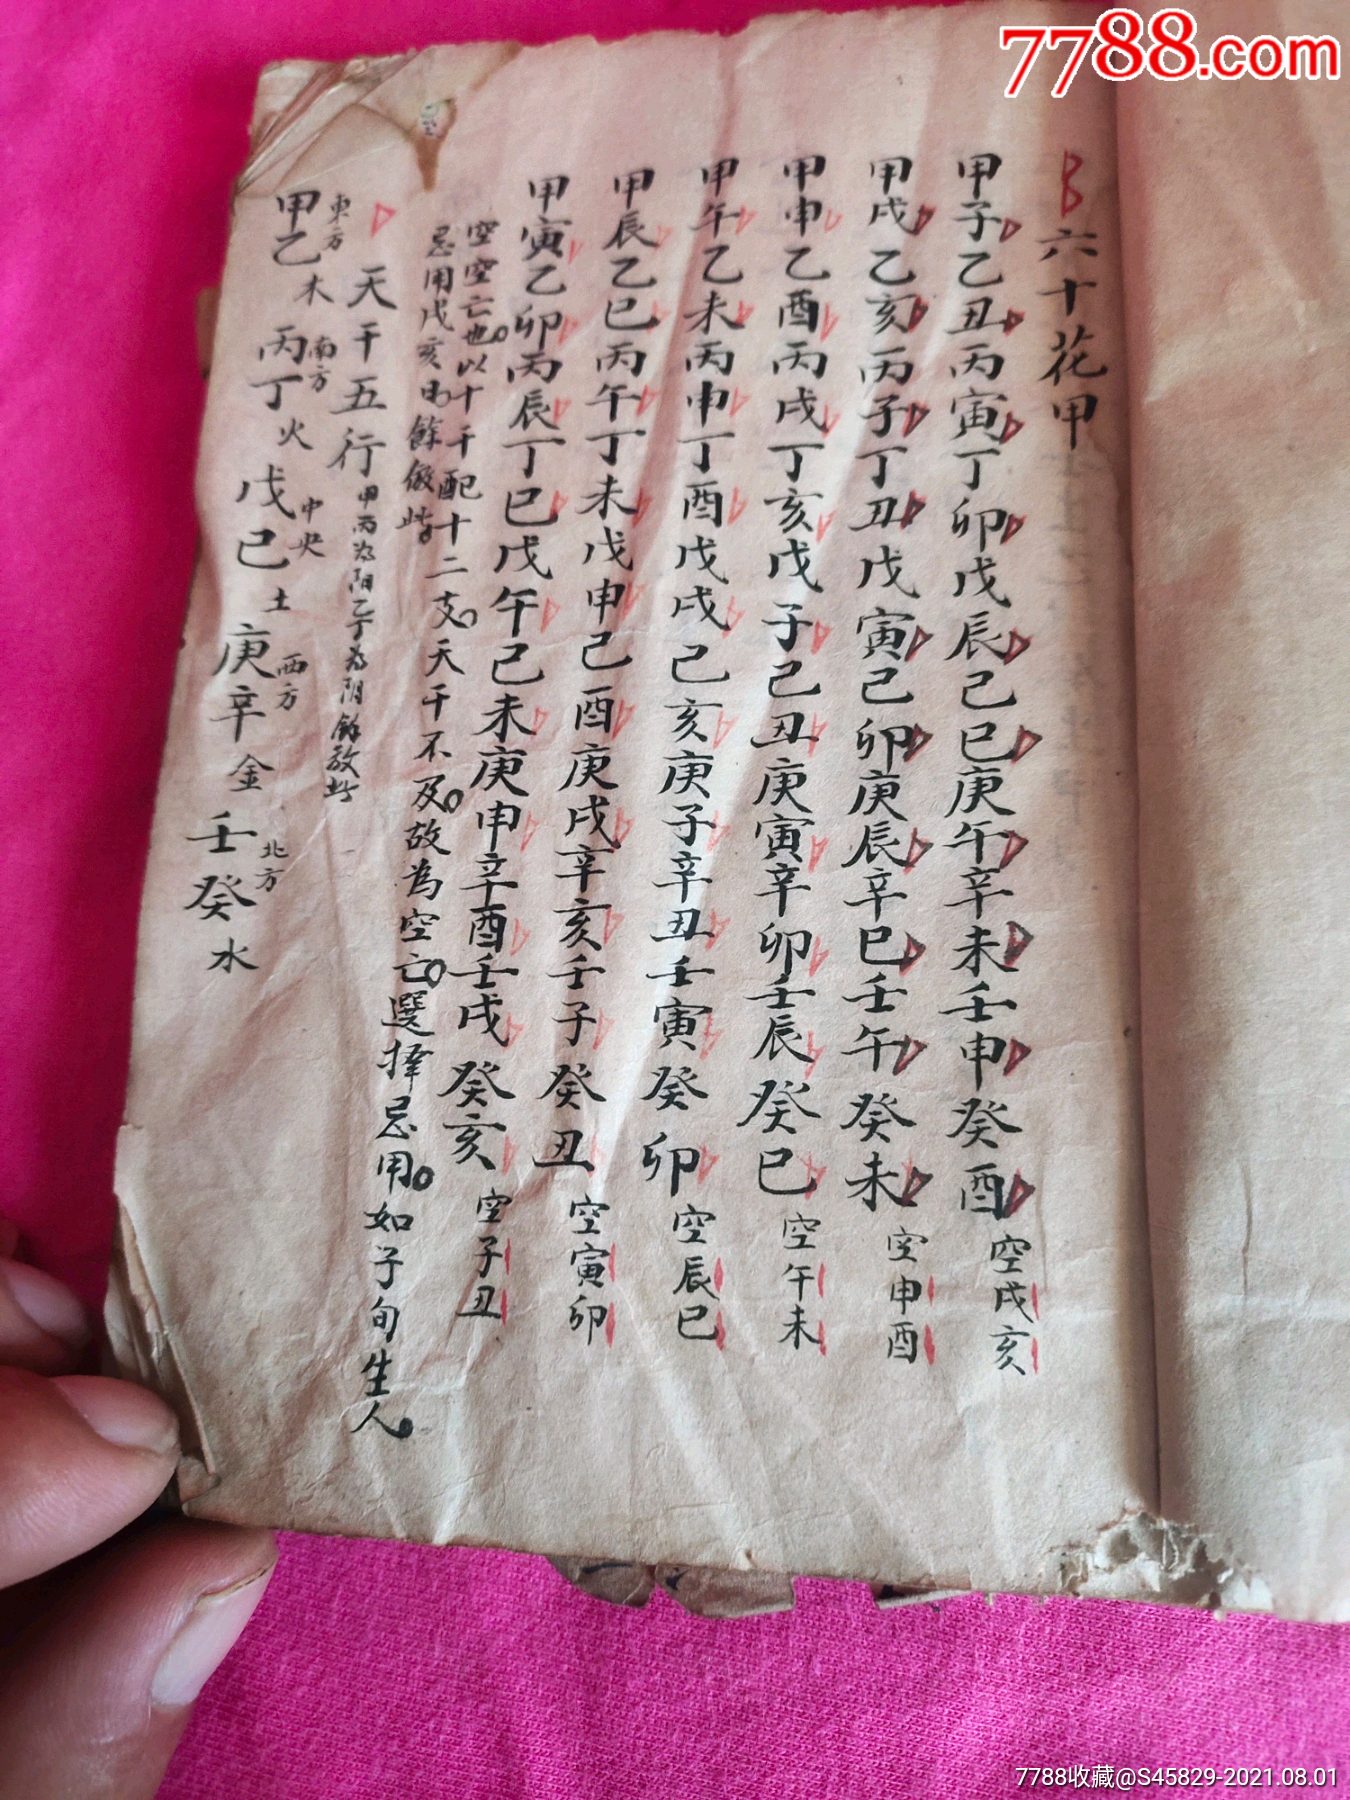 7788.com
六十花甲
甲子乙丑丙寅丁卯戊辰己巳庚午辛未壬申癸酉 空戌亥
甲戌乙亥丙子丁丑戊寅己卯庚辰辛巳壬午癸未 空申酉
甲申乙酉丙戌丁亥戊子己丑庚寅辛卯壬辰癸巳 空午未
甲午乙未丙申丁酉戊戌己亥庚子辛丑壬寅癸卯 空辰巳
甲辰乙巳丙午丁未戊申己酉庚戌辛亥壬子癸丑 空寅卯
甲寅乙卯丙辰丁巳戊午己未庚申辛酉壬戌癸亥 空子丑
空空亡也。以十干配十二支。天干不及。故為空亡。選择忌用。如子旬生人。
忌用戌亥 餘倣此
天干五行 甲丙为阳乙丁為阴餘放此
東方 南方 中央 西方 北方
甲乙木 丙丁火 戊己土 庚辛金 壬癸水
7788收藏@S45829-2021.08.01